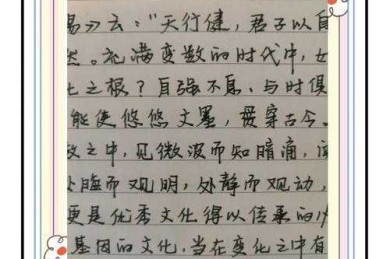 易》云："天行健，君子以自
然。充满变数的时代中，女
化之根？自强不息、与时俱
能使悠悠文墨，贯穿古今。
故之中，见微波而知暗涌，
处晦而观明，处静而观动，
更是优秀文化得以传承的
基因的文化，当在变化之中有